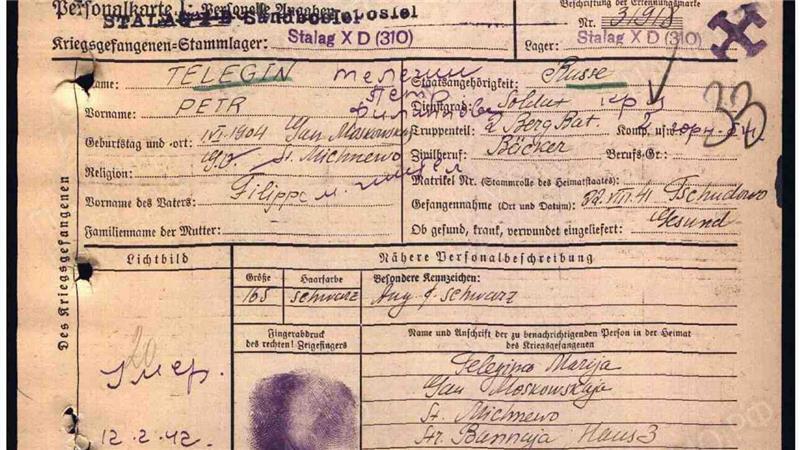 Personalkarte I: Personelle Angaben
Beschriftung der Erkennungsmarke
STALAG
Nr. 3198
Kriegsgefangenen=Stammlager: Stalag X D (310)
Lager: Stalag X D (310)
Des Kriegsgefangenen
Name: TELEGIN Телегин
Vorname: PETR Петр
Geburtstag und =ort: 1904 Gau Moskowskaja
St. Michnewo
Religion:
Vorname des Vaters: Filipp
Familienname der Mutter:
Staatsangehörigkeit: Russe
Dienstgrad: Soldat
Truppenteil: 2 Berg Bat. Komp. usw.
Zivilberuf: Bäcker Berufs=Gr.:
Matrikel Nr. (Stammrolle des Heimatstaates):
Gefangennahme (Ort und Datum): 22.VIII.41 Tschudowo
Ob gesund, krank, verwundet eingeliefert: Gesund
33
Lichtbild
Nähere Personalbeschreibung
Größe
Haarfarbe
Besondere Kennzeichen:
165
schwarz
Aug. schwarz
Fingerabdruck
des rechten! Zeigefingers
Name und Anschrift der zu benachrichtigenden Person in der Heimat
des Kriegsgefangenen
20
Умер.
12.2.42.
Marija
Gau Moskowskaja
St. Michnewo
Str. Bannaja Haus 3